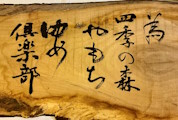 為
四季の森
おもち
ゆめ
倶楽部